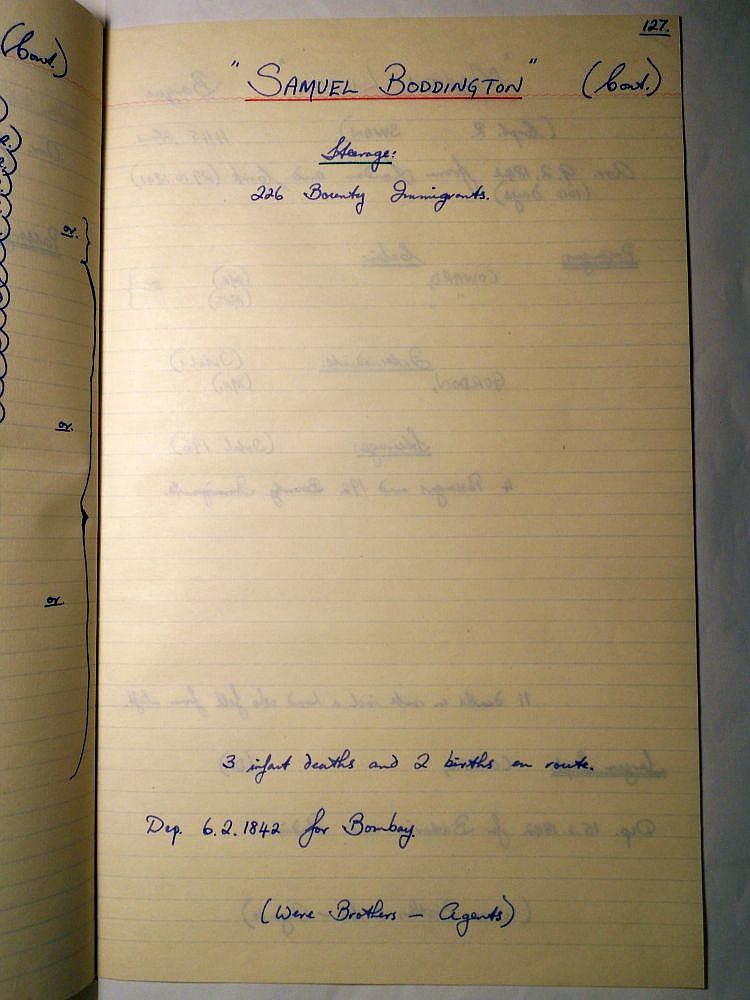 (Cont.)
127.
"SAMUEL BODDINGTON" (Cont.)
Steerage:
226 Bounty Immigrants.
3 infant deaths and 2 births en route.
Dep. 6.2.1842 for Bombay.
(Were Brothers — Agents)
or
or
or